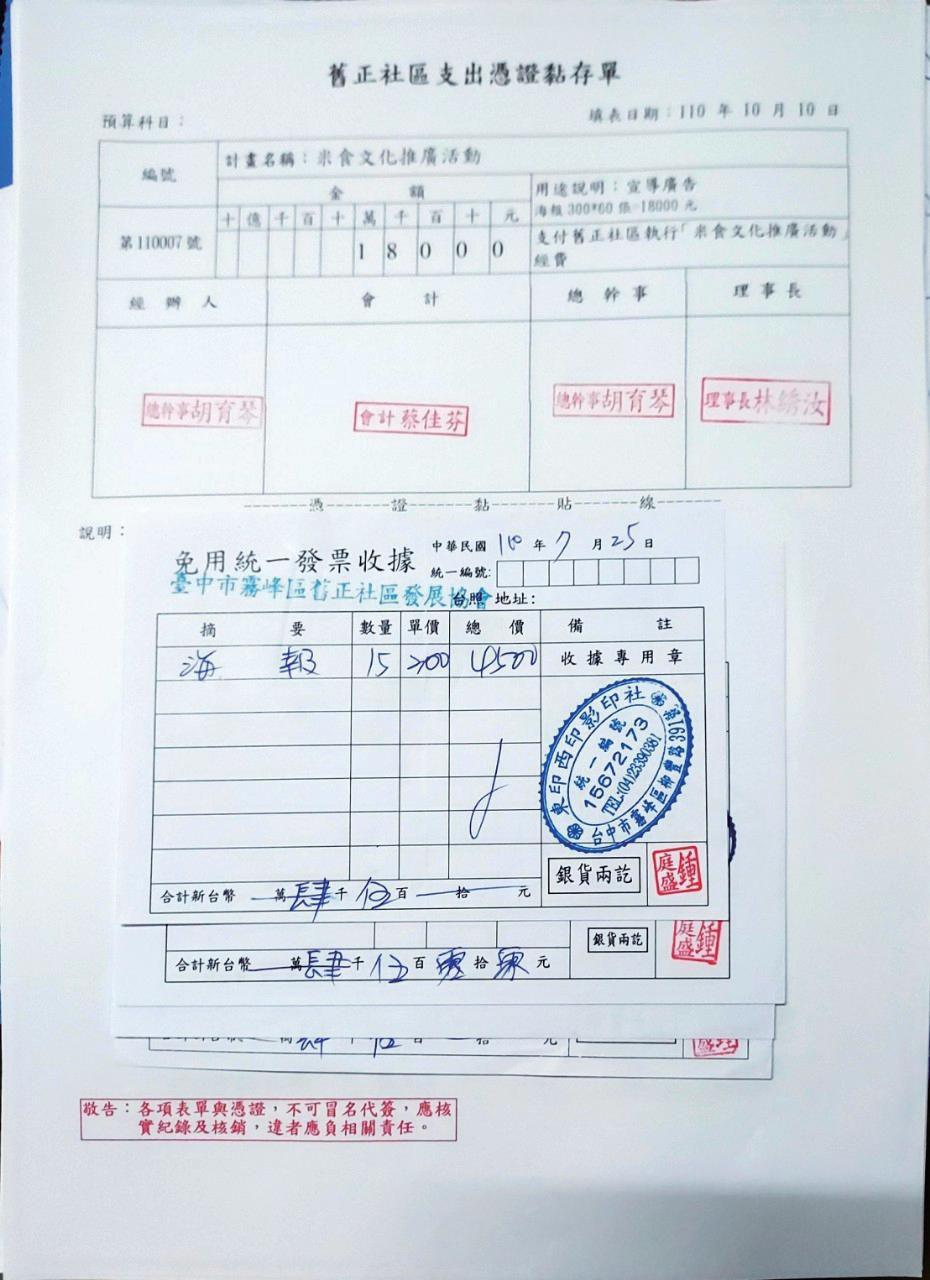 舊正社區支出憑證黏存單
預算科目：
填表日期：110 年 10 月 10 日
編號
計畫名稱：米食文化推廣活動
金 額
用途說明：宣導廣告
海報 300*60 張=18000 元
十 億 千 百 十 萬 千 百 十 元
第110007號
1 8 0 0 0
支付舊正社區執行「米食文化推廣活動」
經費
經 辦 人
會 計
總 幹 事
理 事 長
總幹事胡育琴
會計蔡佳芬
總幹事胡育琴
理事長林綉汝
憑 證 黏 貼 線
說明：
免用統一發票收據
中華民國 110 年 7 月 25 日
統一編號:
臺中市霧峰區舊正社區發展協會
台照 地址:
摘 要 數量 單價 總 價 備 註
海 報 15 300 4500 收據專用章
東印西印影印社
統一編號
15672173
TEL:(04)23390381
台中市霧峰區柳豐路163號
合計新台幣 萬肆千伍百 拾 元
銀貨兩訖
鍾庭盛
合計新台幣 萬肆千伍百零拾零元
銀貨兩訖
鍾庭盛
敬告：各項表單與憑證，不可冒名代簽，應核
實紀錄及核銷，違者應負相關責任。